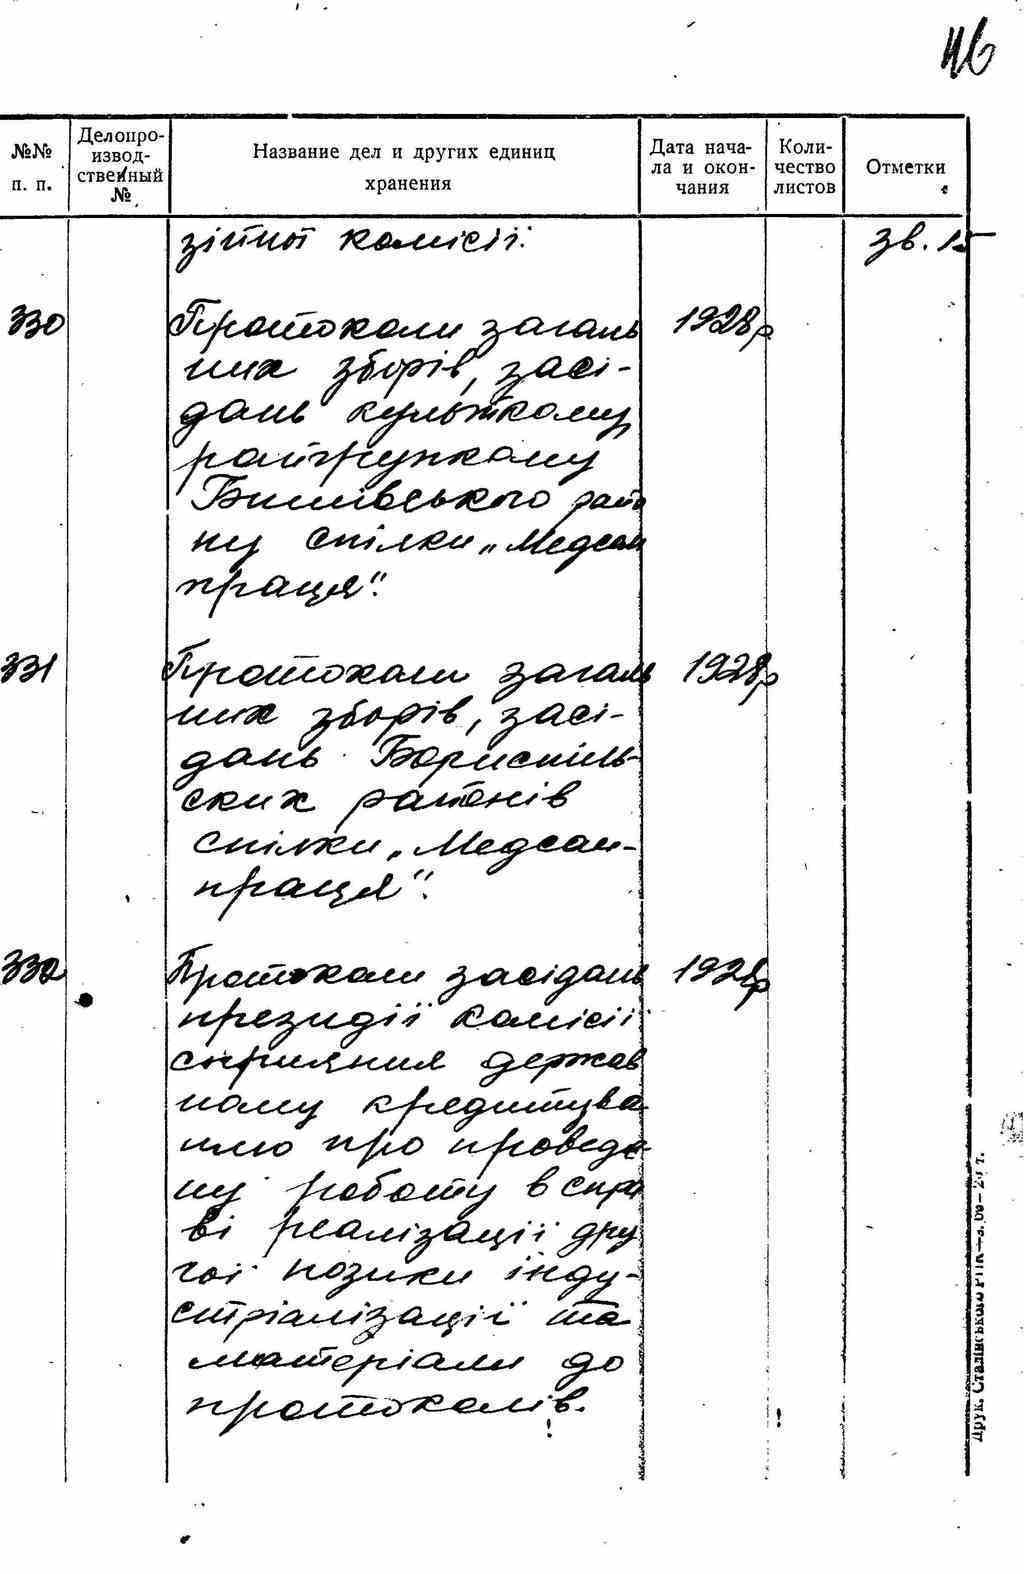 46
№№ п. п.
Делопроизводственный №
Название дел и других единиц хранения
Дата начала и окончания
Количество листов
Отметки
зійної комісії. зв. 15
330 Протоколи загаль 1928р
них зборів, засі-
дань культкому,
райгрупкому
ського райо
ну спілки „Медсан
праця".
331 Протоколи загаль 1928р
них зборів, засі-
дань Бориспіль-
ских районів
спілки „Медсан-
праця".
332 Протоколи засідань 1928р
президії комісії
сприяння держав
ному кредитува
нню про проведе
ну роботу в спра
ві реалізації дру
гої позики інду-
стріалізації та
матеріали до
протоколів.
Друк. Сталінського РПК